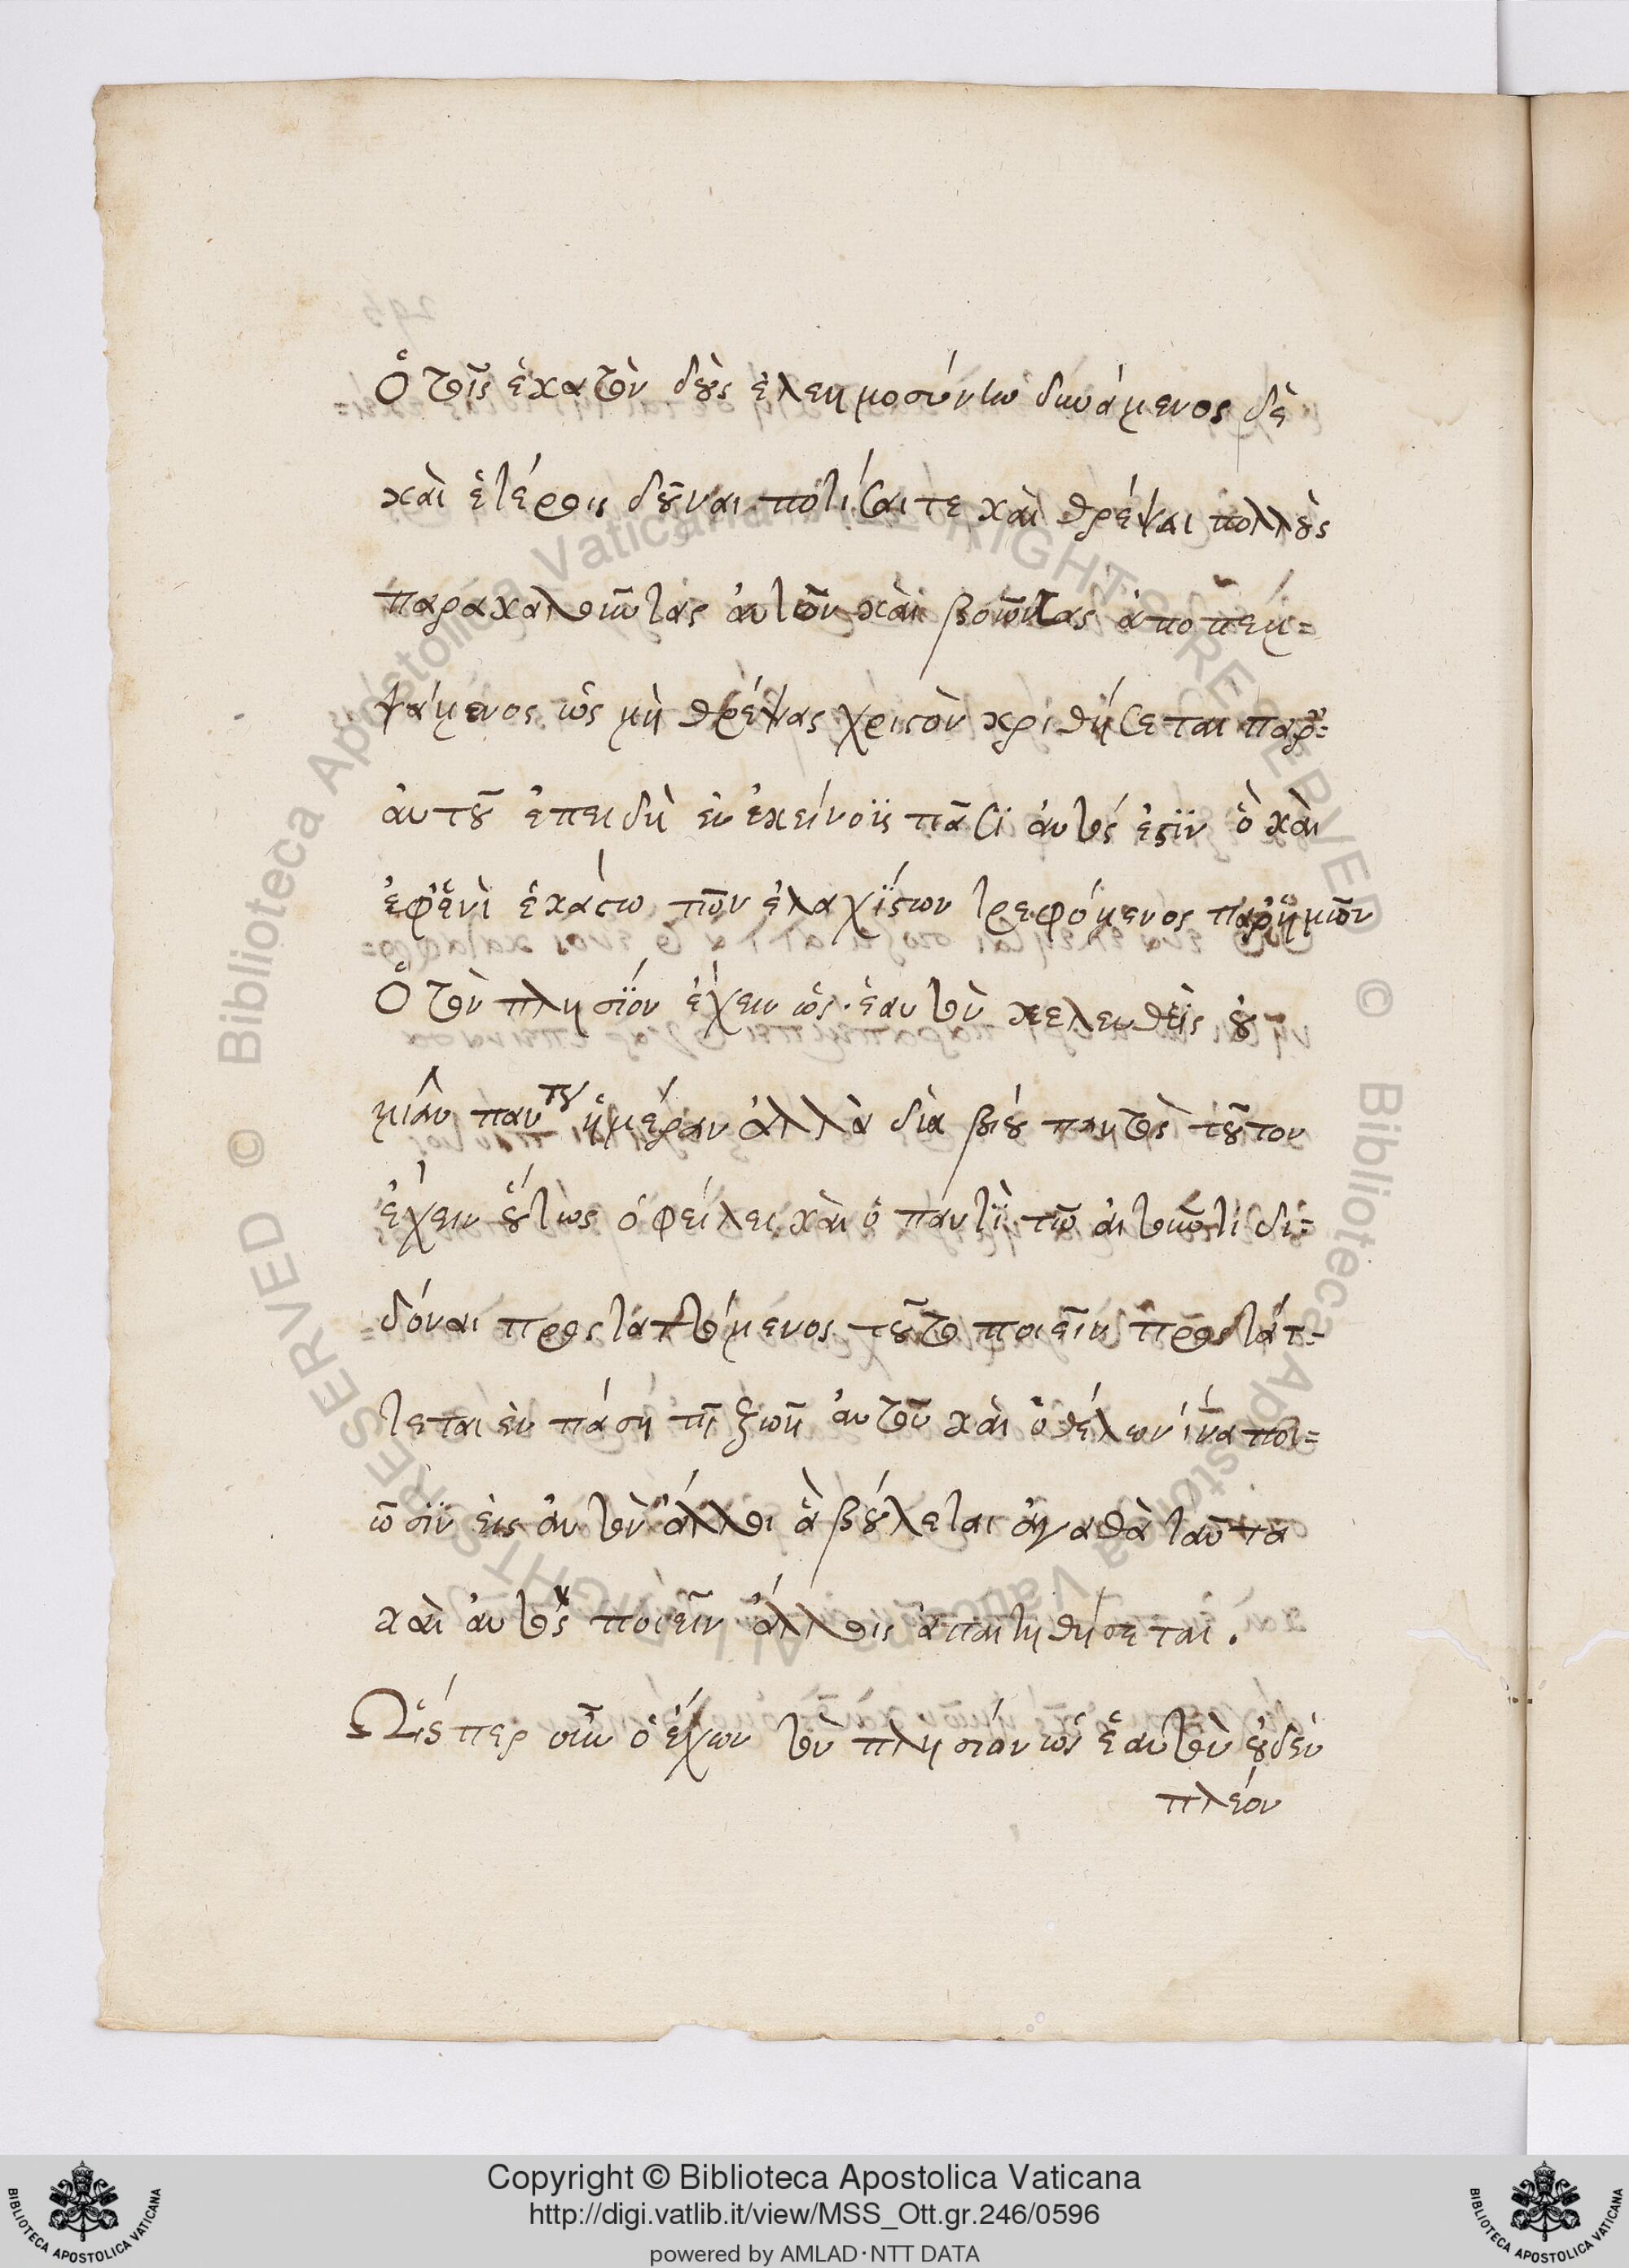 Ὁ τοῖς ἑκατὸν δοὺς ἐλεημοσύνην δυνάμενος δὲ
καὶ ἑτέροις δοῦναι ποτίσαι τε καὶ θρέψαι πολλοὺς
παρακαλοῦντας αὐτὸν καὶ βοῶντας ἀποπεμ=
ψάμενος ὡς μὴ θρέψας χριστὸν κριθήσεται παρ'=
αὐτοῦ ἐπειδὴ ἐν ἐκείνοϊς πᾶσϊ αὐτός ἐστϊν ὁ καὶ
ἐφ' ἑνὶ ἑκάστω τῶν ἐλαχϊστων τρεφόμενος παρ' ἡμῶν
Ὁ τὸν πλησϊόν ἔχειν ὡς ἑαυτὸν κελευθεὶς οὐ
μίαν ἡμέραν ἀλλὰ δία βίου παντὸς τοῦτον
ἔχειν οὕτως ὀφείλει καὶ ὁ παντὶ τῶ αἰτοῦντι δι=
δόναι προσταττόμενος τοῦτο ποιεῖν προστάτ=
τεται ἐν πάση τῆ ζωῆ αὐτοῦ καὶ ὁ θέλων ἵνα ποι=
ῶσϊν εἰς αὐτὸν ἄλλοι ἃ βούλεται ἀγαθὰ ταῦτα
καὶ αὐτὸς ποιεῖν ἄλλοις ἀπαιτηθήσεται.
Ὥσπερ οὖν ὁ ἔχων τὸν πλησιόν ὡς ἑαυτὸν οὐδὲν
πλέον
© Biblioteca Apostolica Vaticana ALL RIGHTS RESERVED © Biblioteca Apostolica Vaticana ALL RIGHTS RESERVED
Copyright © Biblioteca Apostolica Vaticana
http://digi.vatlib.it/view/MSS_Ott.gr.246/0596
powered by AMLAD·NTT DATA
BIBLIOTECA APOSTOLICA VATICANA
BIBLIOTECA APOSTOLICA VATICANA